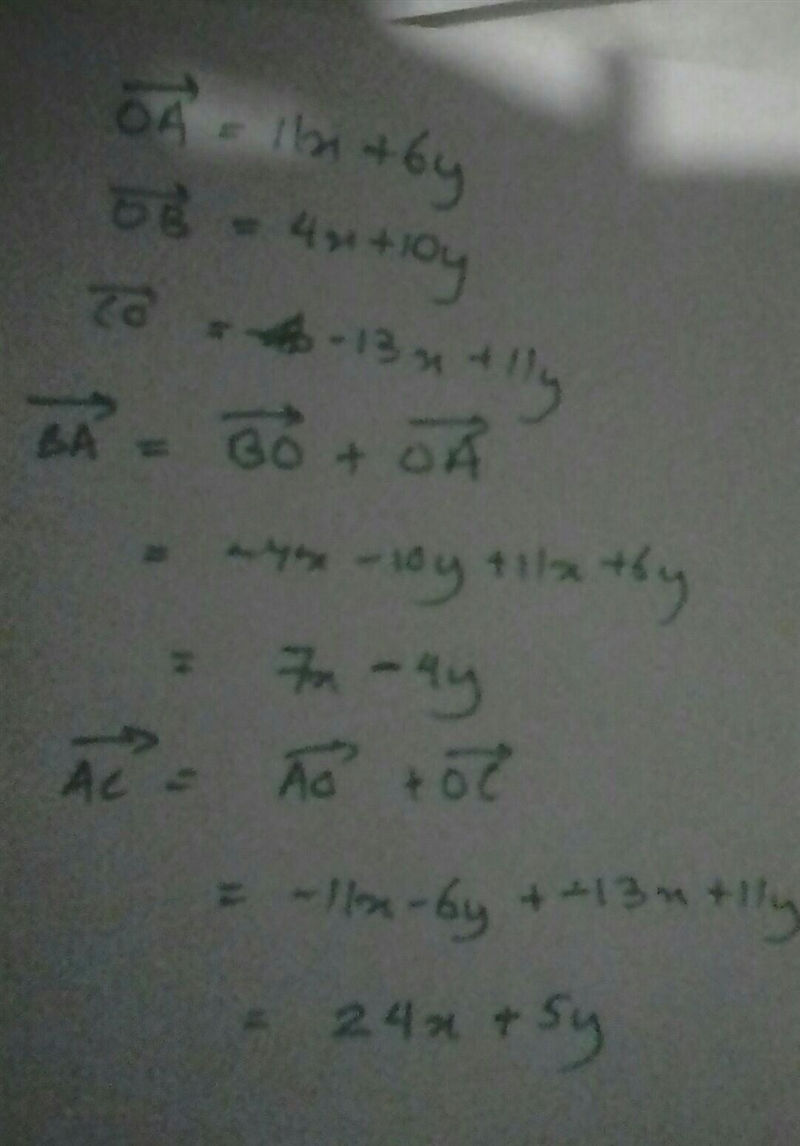 OA = 11x + 6y
OB = 4x + 10y
CO = -13x + 11y
BA = BO + OA
= -4x - 10y + 11x + 6y
= 7x - 4y
AC = AO + OC
= -11x - 6y + -13x + 11y
= 24x + 5y